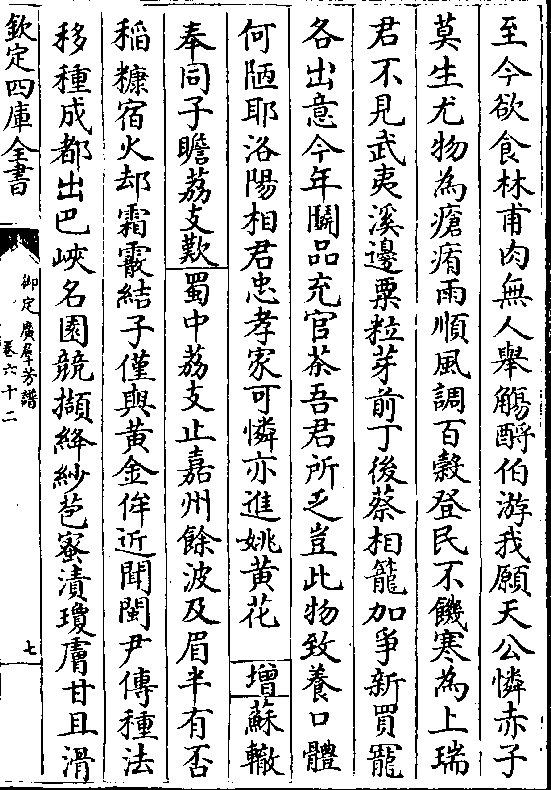 至今欲食林甫肉無人舉觴酹伯游我願天公憐赤子
莫生尤物為瘡痏雨順風調百穀登民不饑寒為上瑞
君不見武夷溪邊粟粒芽前丁後蔡相籠加爭新買寵
各出意今年鬬品充官茶吾君所乏豈此物致養口體
何陋耶洛陽相君忠孝家可憐亦進姚黃花 增蘇轍
奉同子瞻荔支歎蜀中荔支止嘉州餘波及眉半有否
稻糠宿火却霜霰結子僅與黃金侔近聞閩尹傳種法
移種成都出巴峽名園競擷絳紗苞蜜漬瓊膚甘且滑
欽定四庫全書
御定廣羣芳譜
卷六十二
七